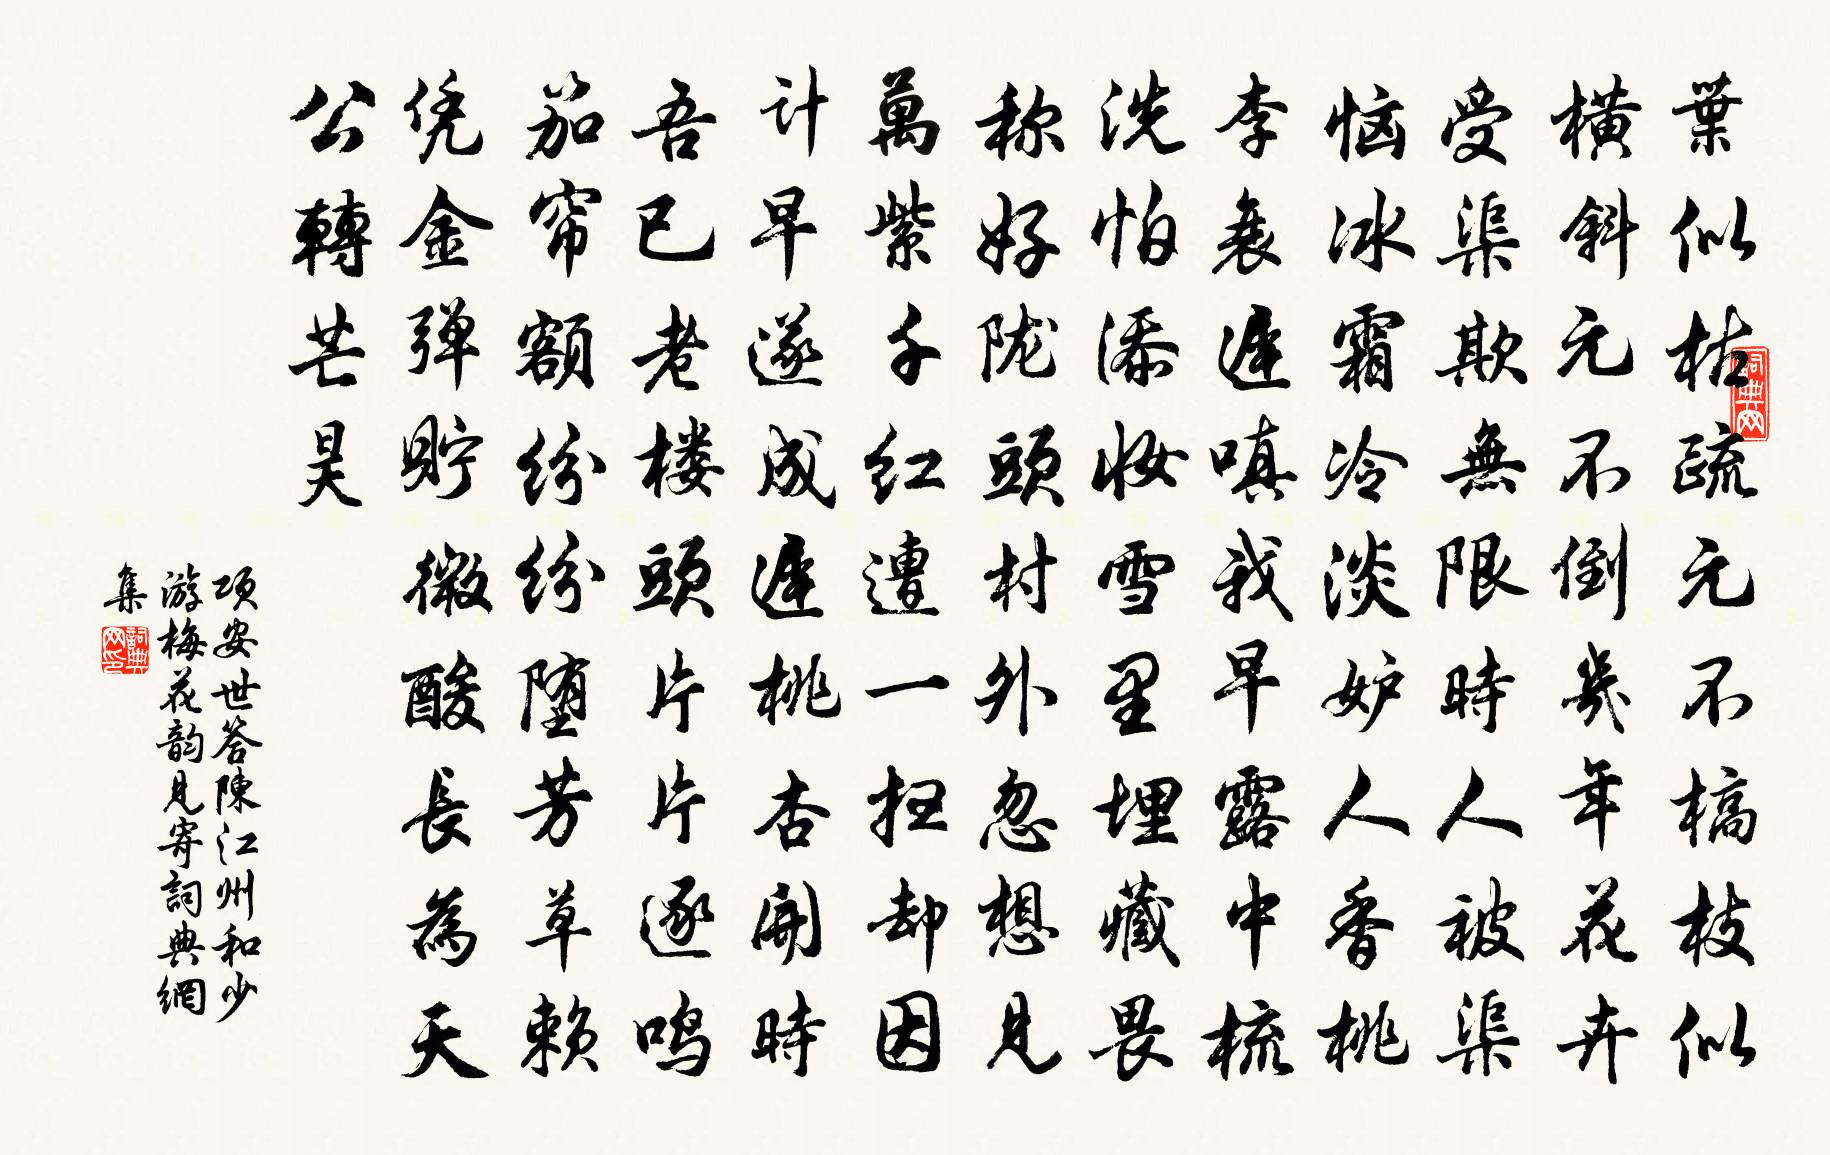 葉似枯疏元不槁枝似
横斜元不倒幾年花卉
受渠欺無限時人被渠
恼冰霜冷淡妒人香桃
李衰遲嗔我早露中梳
洗怕添妆雪里埋藏畏
称好陇頭村外忽想見
萬紫千红遭一扫却因
计早遂成遲桃杏開時
吾已老楼頭片片逐鸣
笳帘额纷纷堕芳草赖
凭金弹貯微酸長為天
公轉芒昊
項安世答陳江州和少
游梅花韵見寄詞典網
集
詞典网
詞典网印